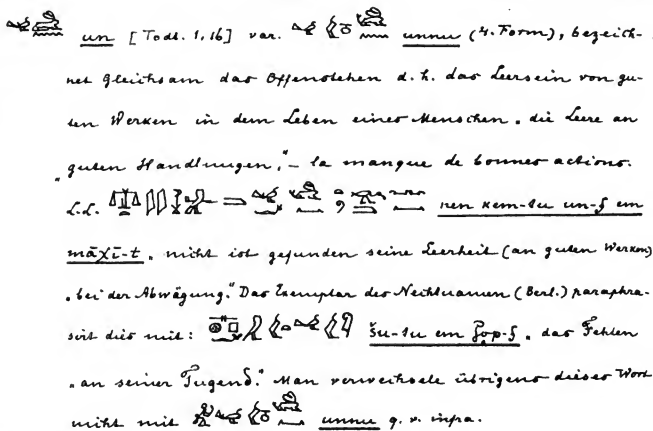 un [Todt. 1,16] var. unnu (4. Form), bezeich-
net gleichsam das Offenstehen d. h. das Leersein von gu-
ten Werken in dem Leben eines Menschen, „die Leere an
guten Handlungen," – la manque de bonnes actions.
L.L. nen kem-tu un-f em
māχī-t, „nicht ist gefunden seine Leerheit (an guten Werken)
„bei der Abwägung." Das Exemplar des Nechtuamen (Berl.) paraphra-
sirt dies mit: šu-tu em „das Fehlen
„an seiner Tugend." Man verwechsele übrigens dieses Wort
nicht mit unnu q. v. infra.